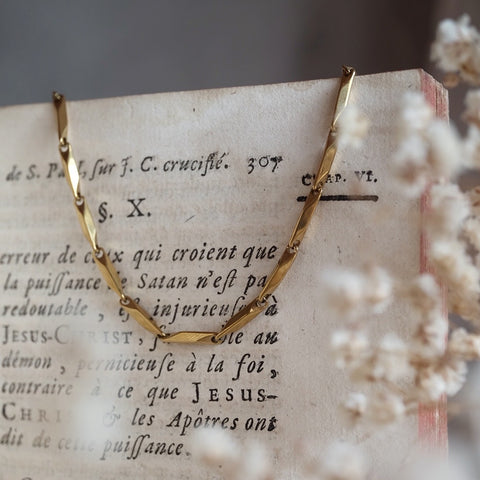 de S. Paul, ſur J. C. crucifié. 307
CHAP. VI.
§. X.
erreur de ceux qui croient que
la puiſſance de Satan n'eſt pas
redoutable, eſt injurieuſe à
JESUS-CHRIST, au
démon, pernicieuſe à la foi,
contraire à ce que JESUS-
CHRIST & les Apôtres ont
dit de cette puiſſance.